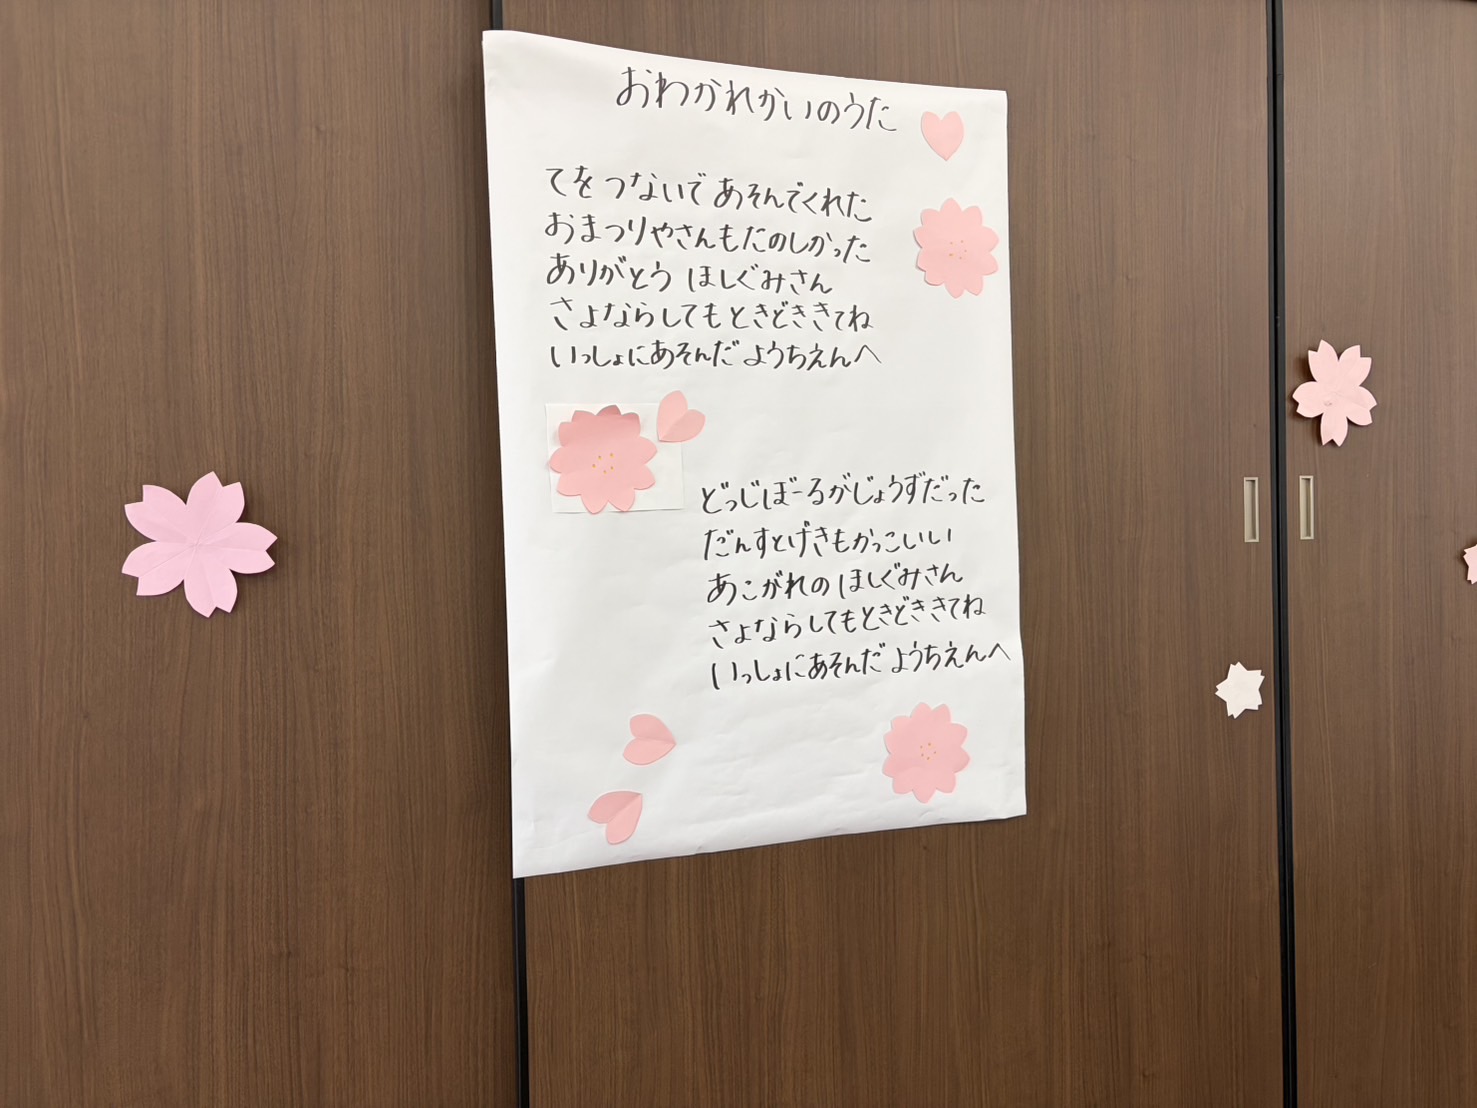 おわかれかいのうた
てを つないで あそんでくれた
おまつりやさんもたのしかった
ありがとう ほしぐみさん
さよならしてもときどききてね
いっしょにあそんだ ようちえんへ
どっじぼーるがじょうずだった
だんすとげきもかっこいい
あこがれの ほしぐみさん
さよならしてもときどききてね
いっしょにあそんだ ようちえんへ